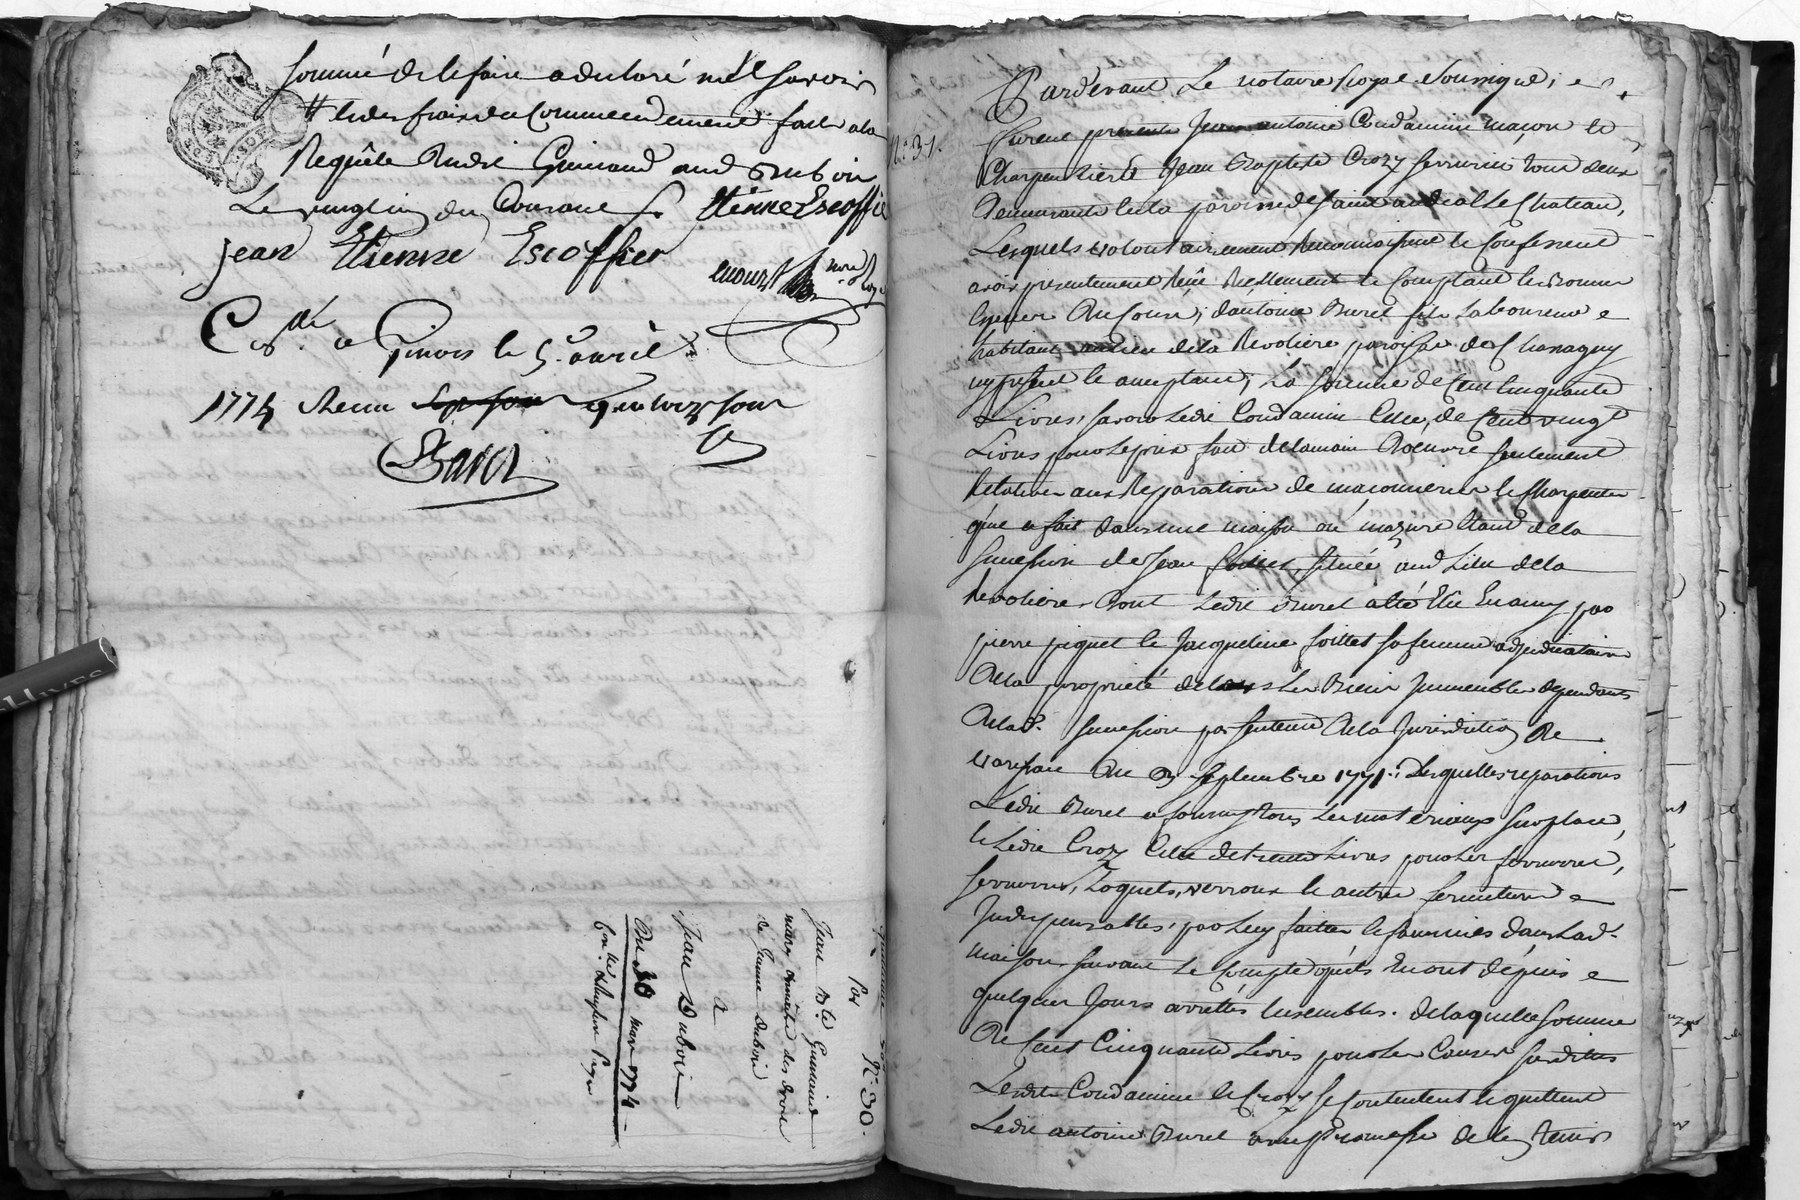 sommé de le faire a declaré ne le savoir
# et des frais du Commeendement fait a la
Requête dudit Guinand aud Duboin
Le vingt du Courant /. Etienne Escoffie
Jean Etienne Escoffier
nore Roy
Con. à Givors le 5e. avril
1774 Recu quatorze sous
Baret
quittance
N.° 30.
Par
Jean B.te Guinand
mary de droits
de Jeanne Duboin
a
Jean Duboin
Du 30 mars 1774
N.° 31.
Pardevant Le notaire Royal soussigné, e
Furent presents Jean antoine Condamine maçon et
Charpentier et Jean Baptiste Crozy serrurier tous deux
demeurants en la paroisse de saint andéol Le Chateau,
Lesquels volontairement reconnoissent et Confessent
avoir presentement Reçu Reellement et Comptant en bonnes
Especes au Cours, d'antoine Buret fils Laboureur e
habitant au lieu de la Revoliere paroisse de Chanagny
icy present et acceptant, La somme de Cent Cinquante
Livres, savoir Ledit Condamine Celle, de Cent vingt
Livres pour le prix fait de la main d'oeuvre seulement
Relative aux Reparations de maçonneries et Charpente
qu'il a fait dans une maison ou mazure étant de la
succession de Jean foillet, située aud Lieu de la
Revoliere. dont Ledit Buret a été Elu en amy par
pierre piquet et Jacqueline foillet sa femme adjudicataire
de la proprieté de tous Les Biens Immeubles dependants
de lad. succession par sentence de la Jurisdiction de
du septembre 1771. Lesquelles reparations
Ledit Buret a fourny tous Les materiaux sur place,
et Ledit Crozy Celle de trente Livres pour Les ferrures,
serrures, Loquets, verroux et autres fermetures e
Indispensables, par Luy faittes et fournies dans Lad.
maison suivant Le Compte qu'ils en ont depuis e
quelques Jours arrettés Ensembles. de laquelle somme
de Cent Cinquante Livres pour Les Causes susdittes
Lesdits Condamine et Crozy se Contentent et quittent
Ledit antoine Buret avec Promesse de le tenir